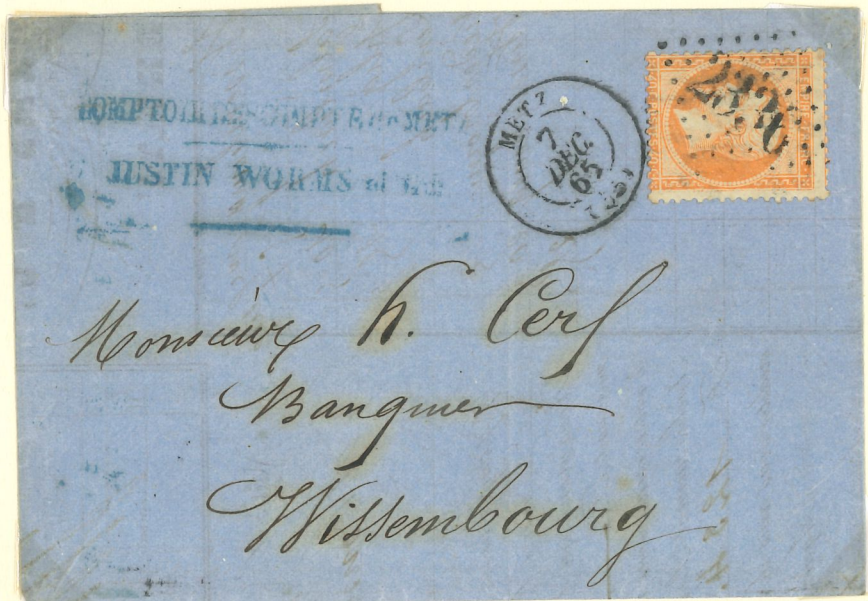 COMPTOIR D'ESCOMPTE DE METZ
JUSTIN WORMS et
METZ
7
DEC.
65
(55)
2320
Monsieur h. Cerf
Banquier
Wissembourg